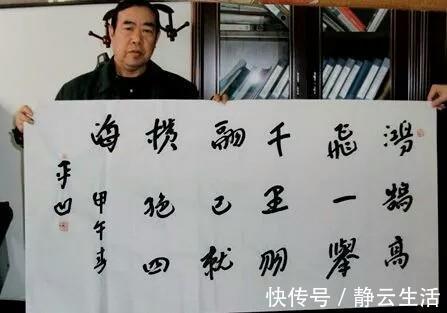 鸿鵠高
飛一舉
千里羽
翮已就
横绝四
海 甲午春
平凹
快传号 / 静云生活